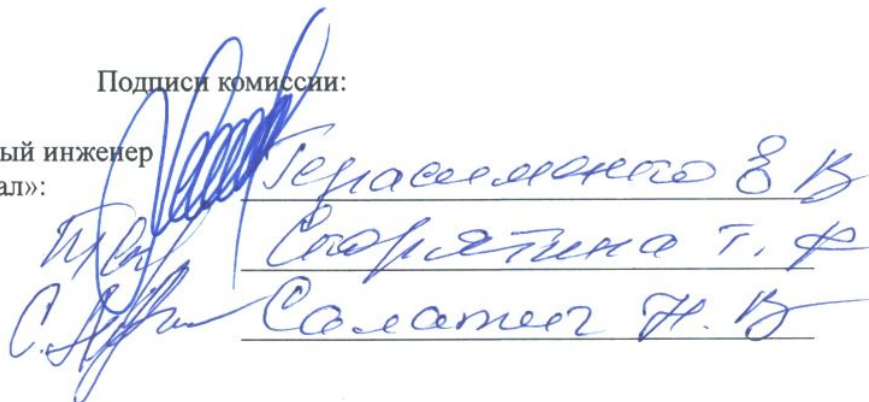 Подписи комиссии:
ый инженер
ал»:
Герасименко Е В
Скорятина Т. Ф
Саламат Н. В